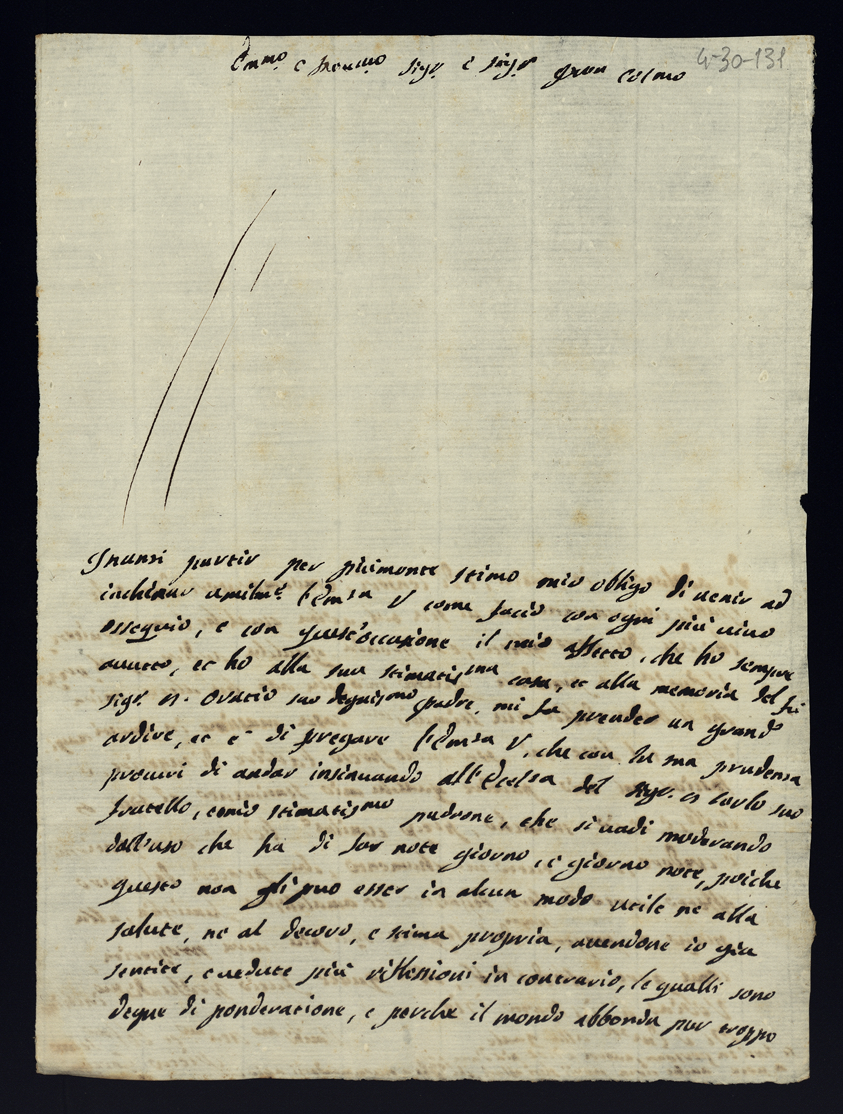 Em.mo e Reu.mo sig.r e sig.r gran Colmo
4-30-131
Inansi partir per piemonte stimo mio obligo di uenir ad
inchinar umilm.e l'Em.za V come facio con ogni più uiuo
ossequio, e con quest'occasione il mio affetto, che ho sempre
auutto, et ho alla sua stimatis.ma casa, et alla memoria del fu
sig.r Oratio suo degnis.mo padre, mi fa prender un grand
ardire, et e di pregare l'Em.za V, che con la sua prudensa
procuri di andar insinuando all' del sig.r Carlo suo
fratello, e mio stimatis.mo padrone, che si uadi moderando
dall'uso che ha di far note giorno, e giorno note, poiche
questo non gli può esser in alcun modo utile ne alla
salute, ne al decoro, e stima propria, auendone io gia
sentite, e uedute più riflessioni in contrario, le qualli sono
degne di ponderatione, e perche il mondo abbonda pur troppo